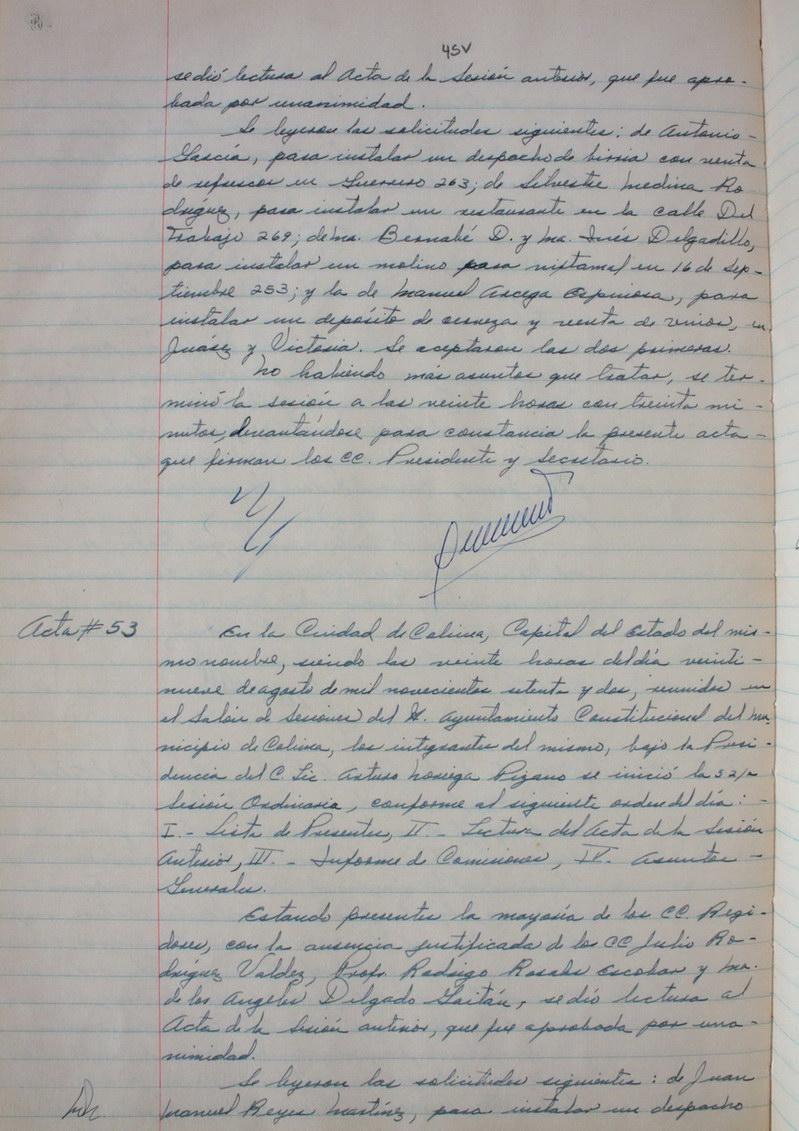 45v
se dió lectura al Acta de la Sesión anterior, que fue apro-
bada por unanimidad.
Se leyeron las solicitudes siguientes: de Antonio-
García, para instalar un despacho de birria con venta
de refrescos en Guerrero 263; de Silvestre Medina Ro
dríguez, para instalar un restaurante en la calle Del
Trabajo 269; de Ma. Bernabé D. y Ma. Inés Delgadillo,
para instalar un molino para nixtamal en 16 de Sep-
tiembre 253; y la de Manuel Arcega Espinosa, para
instalar un depósito de cerveza y venta de vinos, en
Juárez y Victoria. Se aceptaron las dos primeras.
No habiendo más asuntos que tratar, se ter-
minó la sesión a las veinte horas con treinta mi-
nutos, levantándose para constancia la presente acta-
que firman los CC. Presidente y Secretario.
Acta # 53
En la Ciudad de Colima, Capital del Estado del mis-
mo nombre, siendo las veinte horas del día veinti-
nueve de agosto de mil novecientos setenta y dos, reunidos en
el Salón de Sesiones del H. Ayuntamiento Constitucional del Mu-
nicipio de Colima, los integrantes del mismo, bajo la Presi-
dencia del C. Lic. Arturo Noriega Pizano se inició la 52/a
Sesión Ordinaria, conforme al siguiente orden del día:-
I.- Lista de Presentes, II.- Lectura del Acta de la Sesión
Anterior, III.- Informe de Comisiones, IV. Asuntos-
Generales.
Estando presentes la mayoría de los CC. Regi-
dores, con la ausencia justificada de los CC Julio Ro-
dríguez Valdez, Profr. Rodrigo Rosales Escobar y Ma.
de los Angeles Delgado Gaitán, se dió lectura al
Acta de la Sesión anterior, que fue aprobada por una-
nimidad.
Se leyeron las solicitudes siguientes: de Juan
Manuel Reyes Martínez, para instalar un despacho